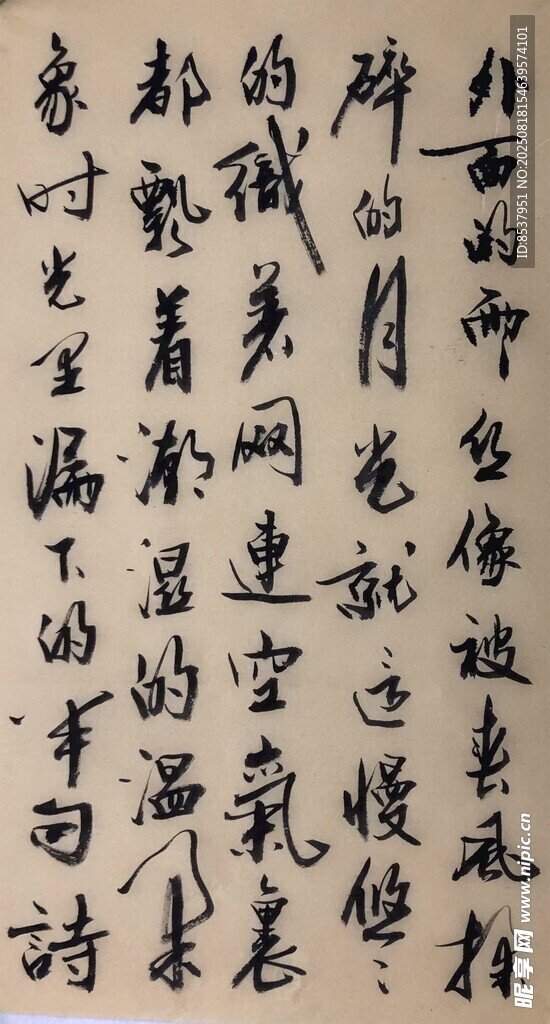 外面的雨丝像被春风揉
碎的月光就这慢悠悠
的織着网連空氣裏
都飘着潮湿的温柔
象时光里漏下的半句詩
ID:8537951 NO:20250818154639574101
昵享网 www.nipic.cn